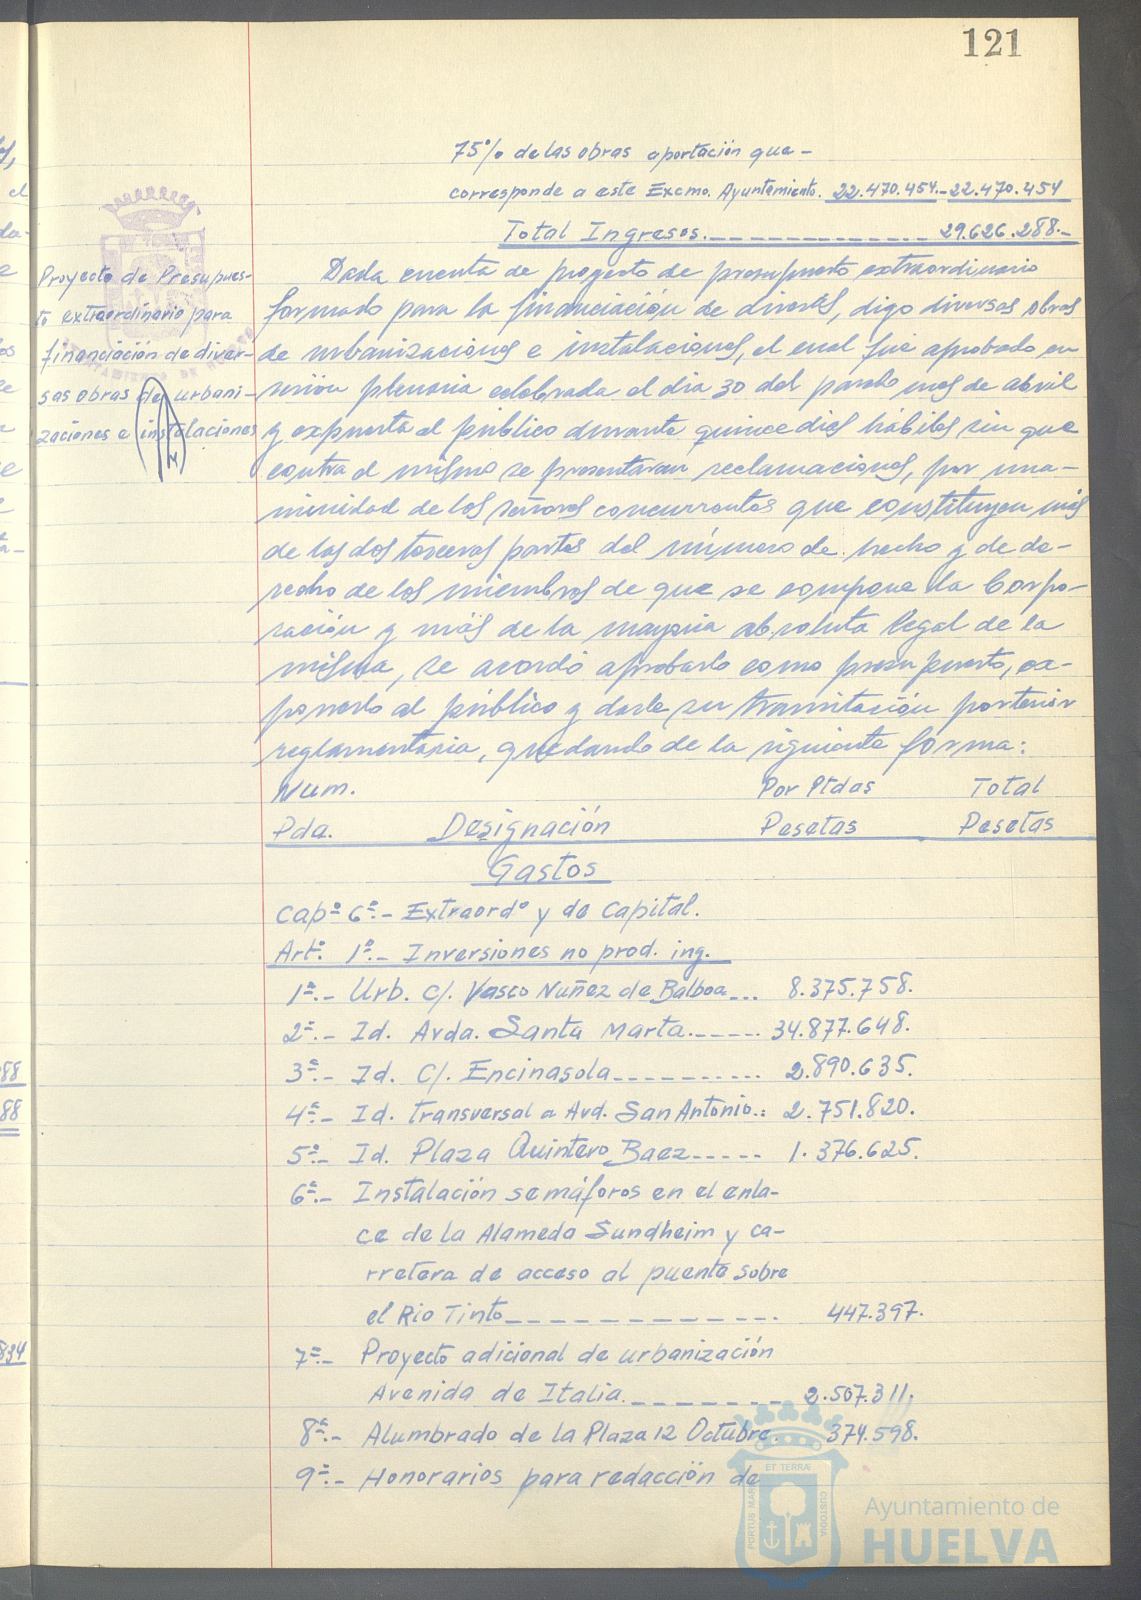 121
75% de las obras aportación que-
corresponde a este Excmo. Ayuntamiento. 22.470.454.- 22.470.454
Total Ingresos. 29.626.288.-
Proyecto de Presupues-
to extraordinario para
financiación de diver-
sas obras de urbani-
zaciones e instalaciones
Dada cuenta de proyecto de presupuesto extraordinario
formado para la financiación de diverss, digo diversas obras
de urbanizaciones e instalaciones, el cual fue aprobado en
sesión plenaria celebrada el dia 30 del pasado mes de abril
y expuesta al público durante quince dias hábiles sin que
contra el mismo se presentaran reclamaciones, por una-
nimidad de los señores concurrentes que constituyen más
de las dos terceras partes del número de hecho y de de-
recho de los miembros de que se compone la Corpo-
ración y más de la mayoria absoluta legal de la
misma, se acordó aprobarlo como presupuesto, ex-
ponerlo al público y darle su tramitación posterior
reglamentaria, quedando de la siguiente forma:
Num. Por Ptdas Total
Pda. Designación Pesetas Pesetas
Gastos
Capº 6º.- Extraordº y de Capital.
Artº. 1º.- Inversiones no prod. ing.
1ª.- Urb. c/. Vasco Nuñez de Balboa... 8.375.758.
2ª.- Id. Avda. Santa Marta.----- 34.877.648.
3ª.- Id. C/. Encinasola---------- 2.890.635.
4ª.- Id. Transversal a Avd. San Antonio.: 2.751.820.
5ª.- Id. Plaza Quintero Baez----- 1.376.625.
6ª.- Instalación semáforos en el enla-
ce de la Alameda Sundheim y ca-
rretera de acceso al puente sobre
el Rio Tinto------------- 447.397.
7ª.- Proyecto adicional de urbanización
Avenida de Italia.-------- 2.507.311.
8ª.- Alumbrado de la Plaza 12 Octubre. 374.598.
9ª.- Honorarios para redacción de
88
88
834
ET TERRÆ
PORTUS MARIS
CUSTODIA
Ayuntamiento de
HUELVA